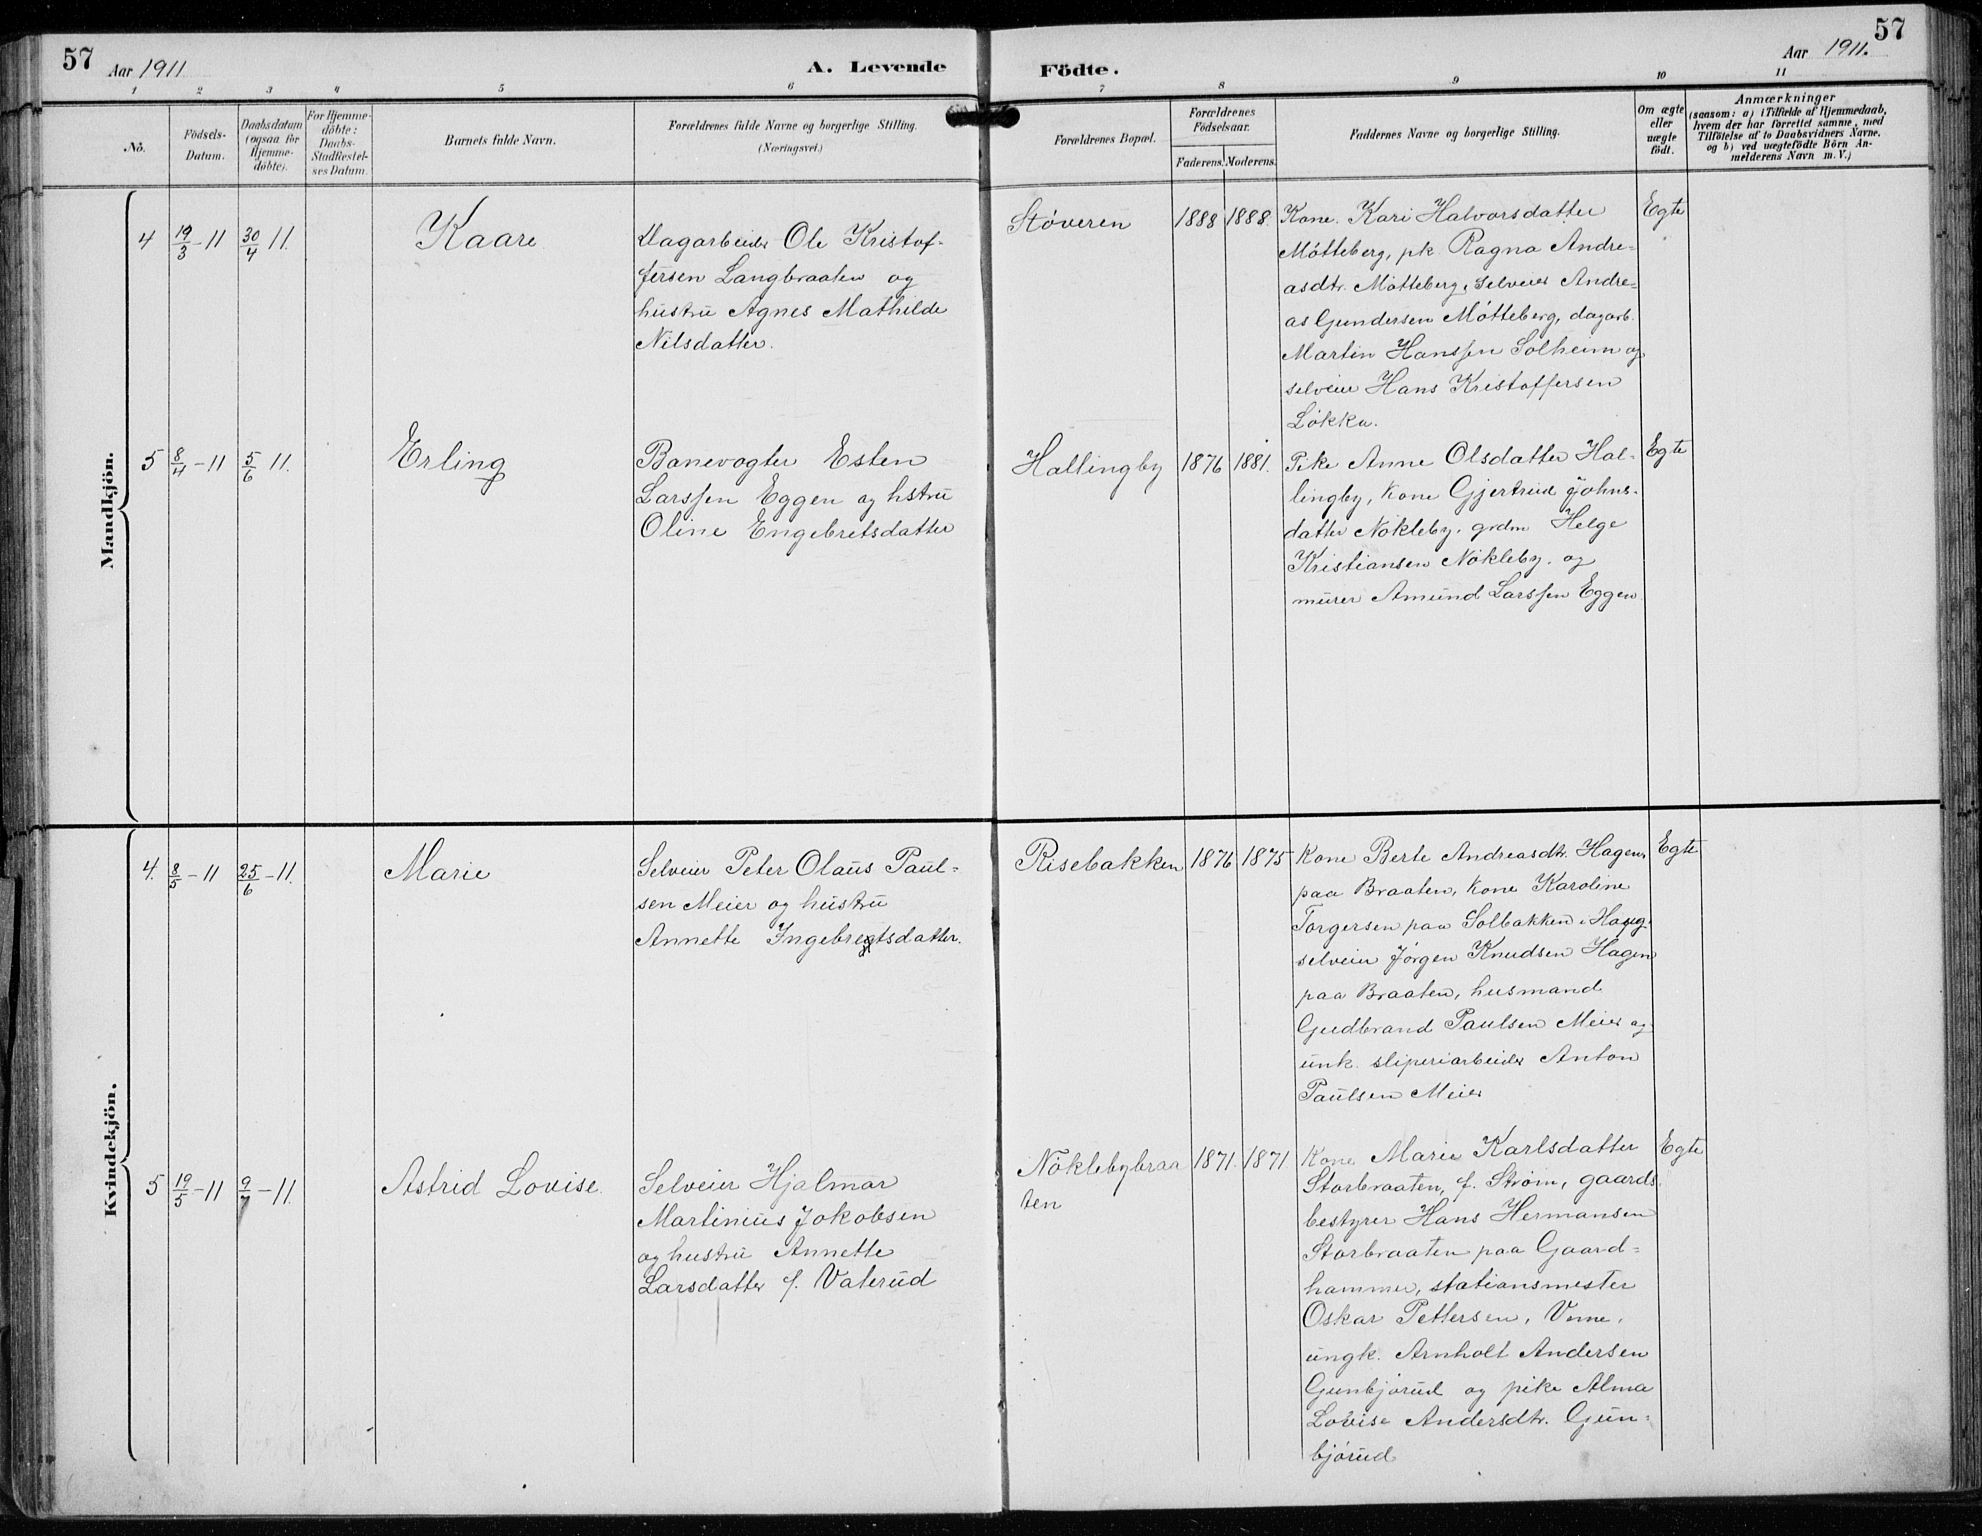 57
Aar 1911
A. Levende
Födte.
Aar 1911.
57
1 2 3 4 5 6 7 8 9 10 11
No.
Födsels-
Datum.
Daabsdatum
(ogsaa för
Hjemme-
döbte).
For Hjemme-
döbte:
Daabs-
Stadfæstel-
ses Datum.
Barnets fulde Navn.
Forældrenes fulde Navne og borgerlige Stilling.
(Næringsvei.)
Forældrenes Bopæl.
Forældrenes
Födselsaar.
Faderens. Moderens.
Faddernes Navne og borgerlige Stilling.
Om ægte
eller
uægte
födt.
Anmærkninger
(saasom: a) i Tilfælde af Hjemmedaab,
hvem der har forrettet samme, med
Tilföielse af to Daabsvidners Navne.
og b) ved uægtefödte Börn An-
melderens Navn m. V.)
Mandkjön.
4 19/3 - 11 30/4 11. Kaare
Dagarbeider Ole Kristof-
fersen Langbraaten og
hustru Agnes Mathilde
Nilsdatter.
Støveren 1888 1888.
Kone. Kari Halvorsdatter
Møtteberg, pk Ragna Andre-
asdtr. Møtteberg, selveier Andre-
as Gundersen Møtteberg, dagarb.
Martin Hanssen Solheim og
selveier Hans Kristoffersen
Løkka.
Egte
5 8/4 - 11 5/6 11. Erling
Banevogter Esten
Larssen Eggen og hstru
Oline Engebretsdatter
Hallingby 1876 1881.
Pike Anne Olsdatter Hal-
lingby, kone Gjertrud Johns-
datter Nökleby, grdm Helge
Kristiansen Nökleby. og
murer Amund Larssen Eggen
Egte
Kvindekjön.
4. 8/5 - 11 25/6 - 11. Marie
Selveier Peter Olaus Paul-
sen Meier og hustru
Annette Ingebregtsdatter.
Risebakken 1876 1875
Kone Berte Andreasdtr. Hagen
paa Braaten, kone Karoline
Torgersen paa Solbakken i Haug.
selveier Jørgen Knudsen Hagen
paa Braaten, husmand
Gudbrand Paulsen Meier og
unk. sliperiarbeider Anton
Paulsen Meier
Egte
5 19/5 - 11 9/7 - 11. Astrid Lovise.
Selveier Hjalmar
Martinius Jokobsen
og hustru Annette
Larsdatter f. Vaterud
Nöklebybraa
ten
1871. 1871
Kone Marie Karlsdatter
Storbraaten, f. Strøm, gaards
bestyrer Hans Hermansen
Storbraaten paa Gaard-
hammer, stationsmester
Oskar Pettersen, Veme,
ungk. Arnholt Andersen
Gunbjørud og pike Alma
Lovise Andersdtr. Gun-
bjørud
Egte